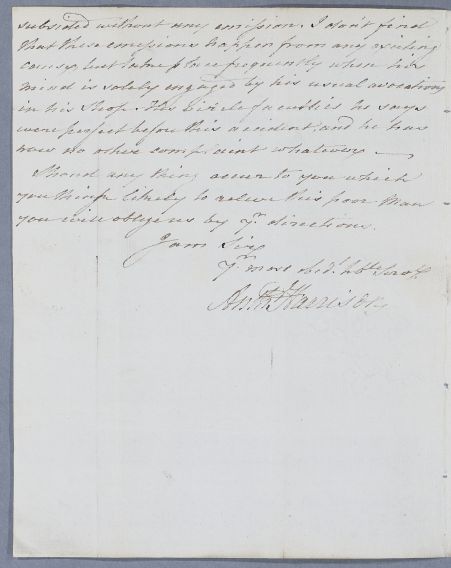 subsided without any emission. I don't find
that these emissions happen from any exciting
cause, but take place frequently when his
mind is solely engaged by his usual avocations
in his Shop. His virile faculties he says
were perfect before this accident, and he has
now no other complaint whatever —
Should any thing occur to you which
you think likely to relieve this poor Man
you will oblige us by yr. directions.
I am Sir
yr. most obedt. Hble Servt.
Harrison